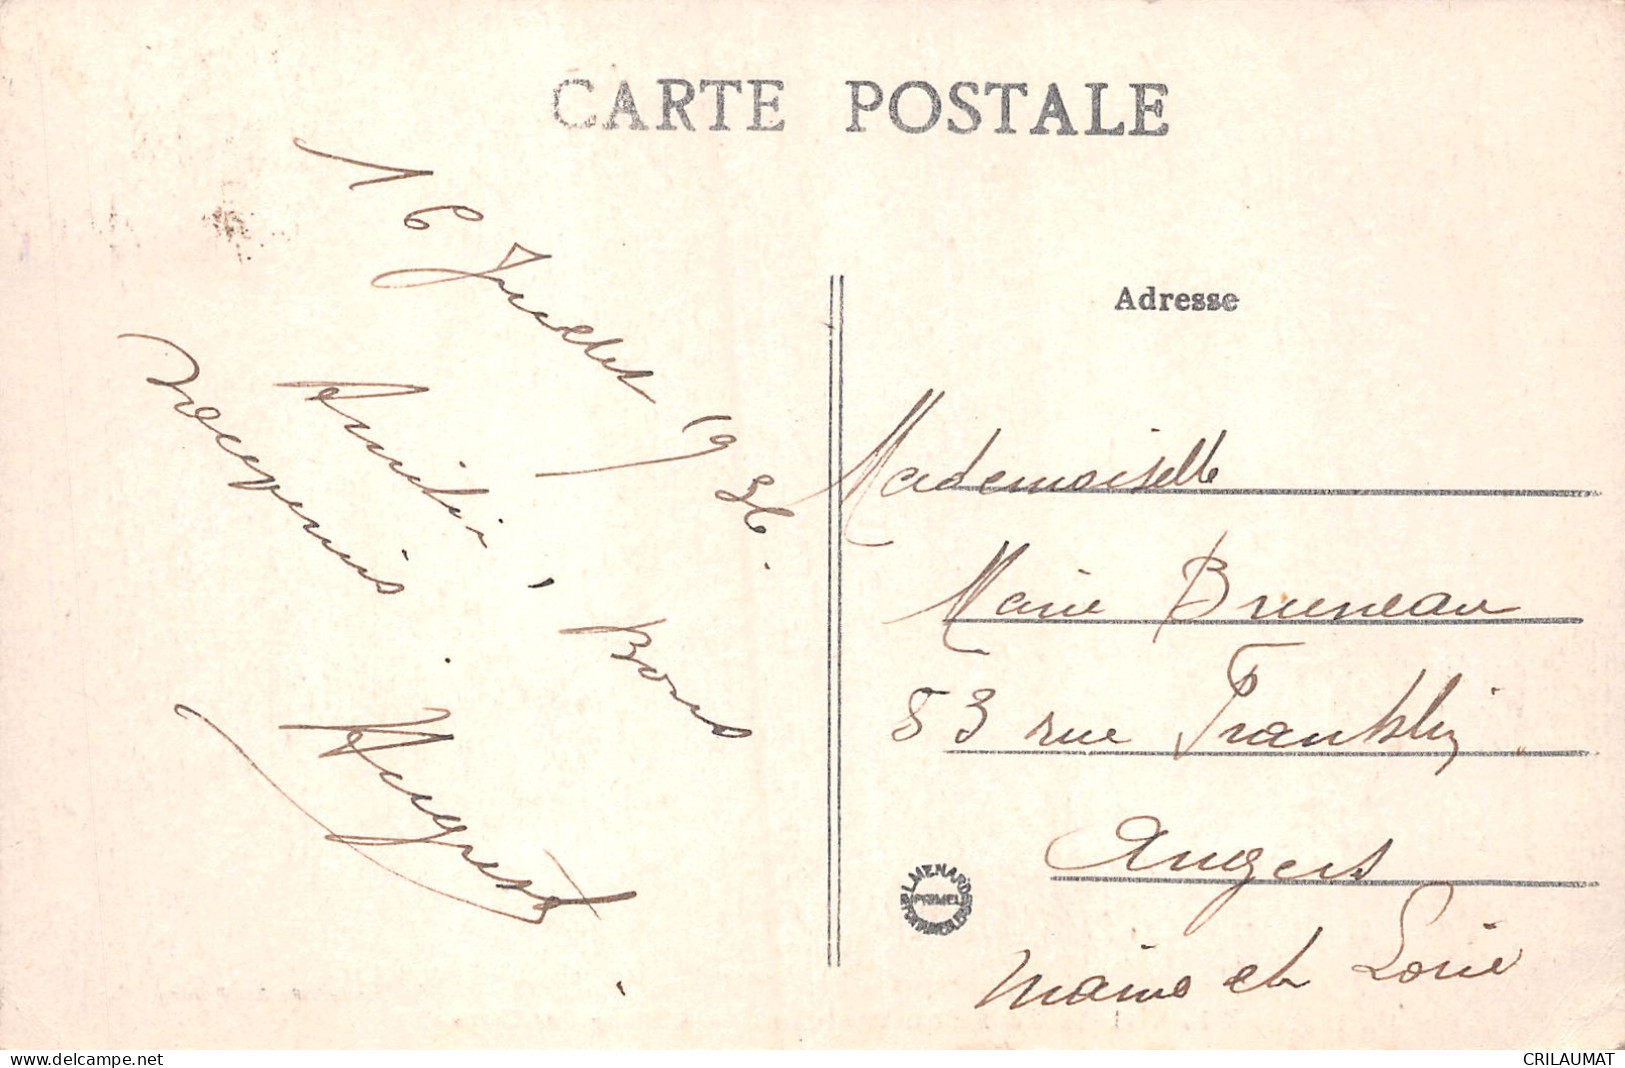 CARTE POSTALE
16 Juillet 1936.
Amitié, Bons
Auguste
Adresse
Mademoiselle
Marie Bruneau
53 rue Franklin
Angers
Maine et Loire
L. MENARD
PRIMEL
www.delcampe.net
CRILAUMAT